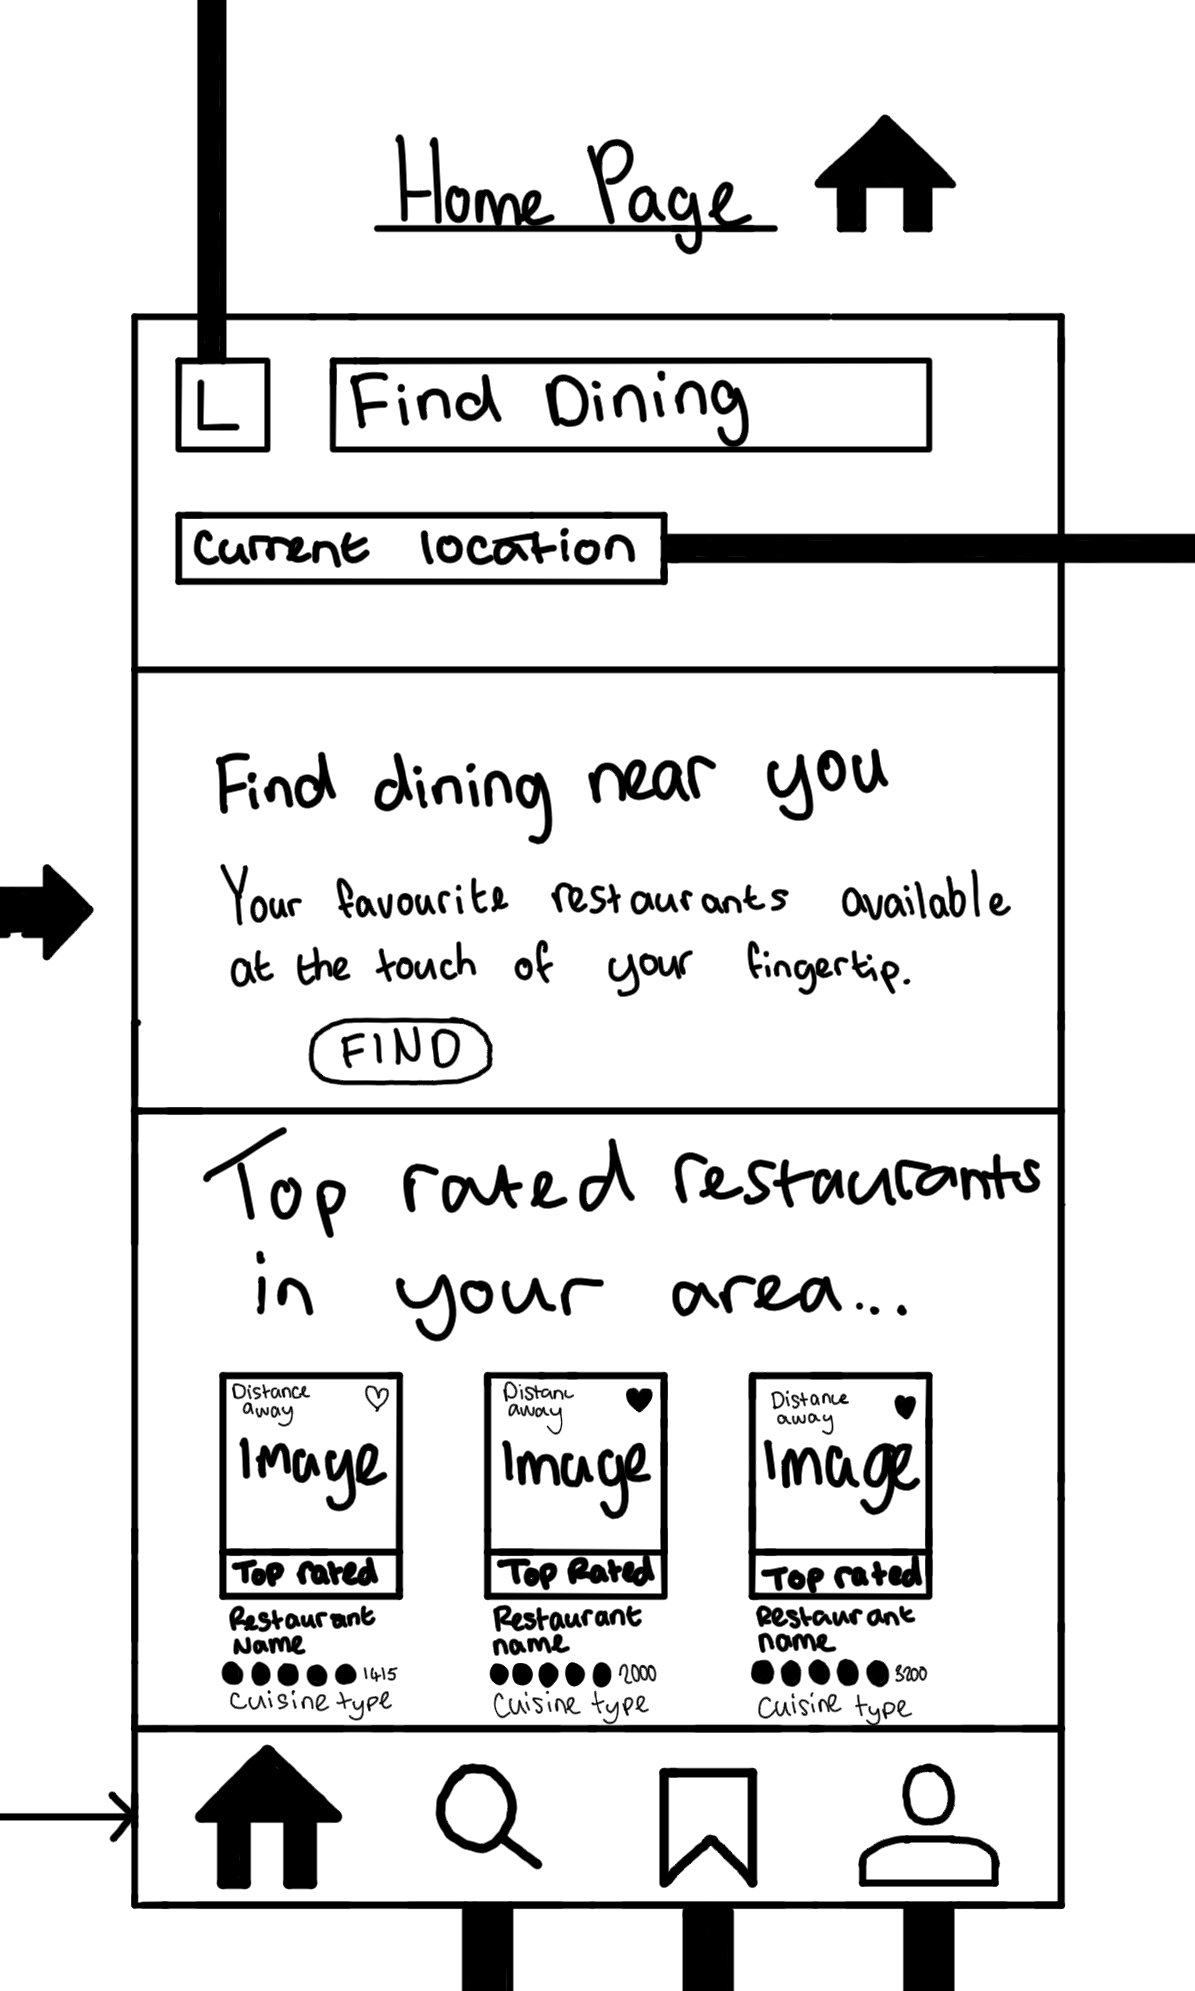 Home Page
L
Find Dining
Current location
Find dining near you
Your favourite restaurants available
at the touch of your fingertip.
FIND
Top rated restaurants
in your area...
Distance
away
Image
Top rated
Restaurant
Name
1415
Cuisine type
Distanc
away
Image
Top Rated
Restaurant
name
2000
Cuisine type
Distance
away
Image
Top rated
Restaurant
name
3200
Cuisine type